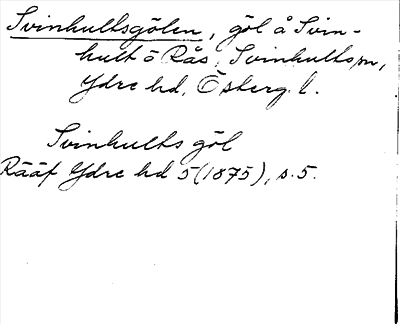 Svinhultsgölen, göl å Svin-
hult ö Rås, Svinhults sn,
Ydre hd, Österg. l.
Svinhults göl
Rääf Ydre hd 5 (1875), s. 5.